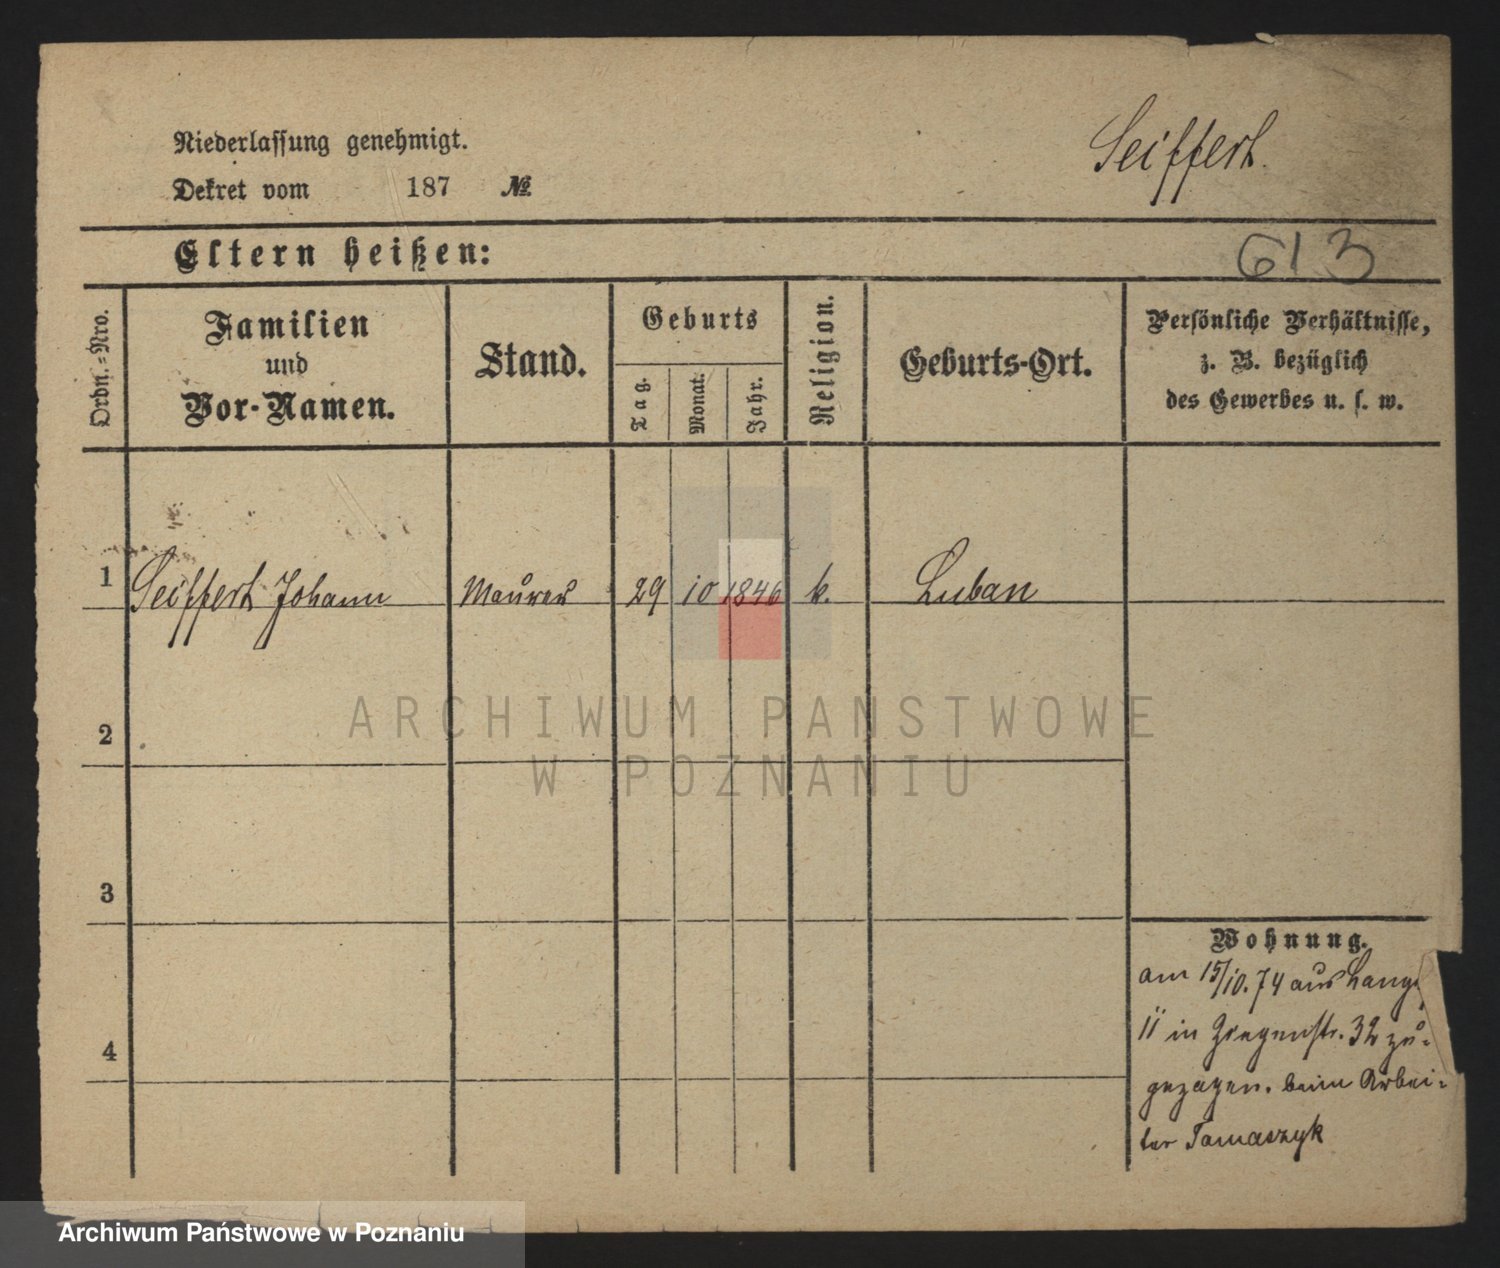 Niederlassung genehmigt.
Dekret vom 187 №
Seiffert.
Eltern heißen:
613
Ordn.=Nro.
Familien
und
Vor-Namen.
Stand.
Geburts
Tag.
Monat.
Jahr.
Religion.
Geburts-Ort.
Persönliche Verhältnisse,
z. B. bezüglich
des Gewerbes u. s. w.
1 Seiffert Johann Maurer 29 10 1846 k. Luban
2
3
4
Wohnung.
am 15/10.74 aus Lange
11 in 32 zu-
gezogen. beim Arbei-
ter Tomaszyk
ARCHIWUM PAŃSTWOWE
W POZNANIU
Archiwum Państwowe w Poznaniu